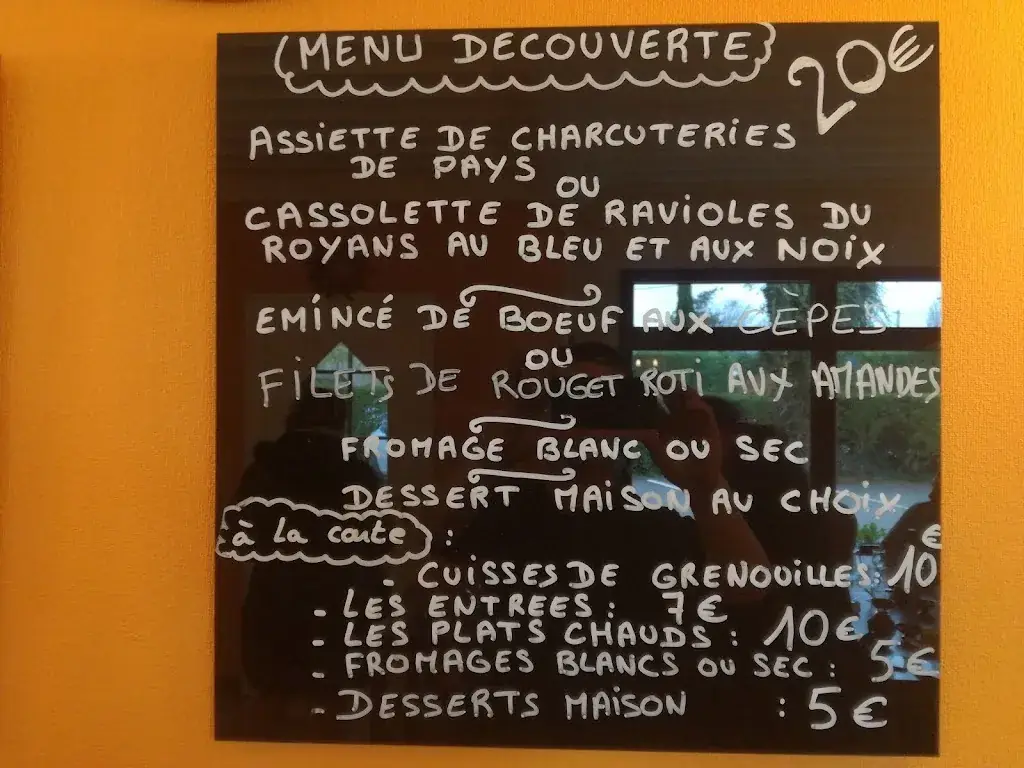 MENU DECOUVERTE 20€
ASSIETTE DE CHARCUTERIES
DE PAYS
OU
CASSOLETTE DE RAVIOLES DU
ROYANS AU BLEU ET AUX NOIX
EMINCÉ DE BOEUF AUX CÈPES
OU
FILETS DE ROUGET ROTI AUX AMANDES
FROMAGE BLANC OU SEC
DESSERT MAISON AU CHOIX
à la carte :
- CUISSES DE GRENOUILLES: 10€
- LES ENTREES : 7€
- LES PLATS CHAUDS : 10€
- FROMAGES BLANCS OU SEC : 5€
- DESSERTS MAISON : 5€